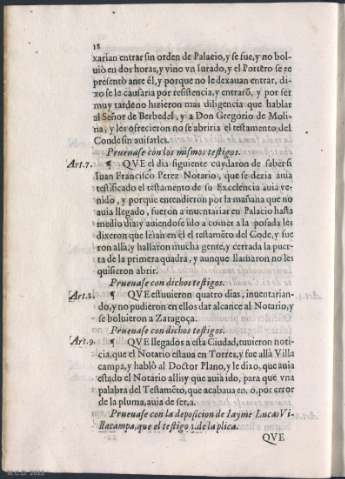 18
xarian entrar sin orden de Palacio, y se fue, y no bol-
uiò en dos horas, y vino vn Iurado, y el Portero se re
presentò ante èl, y porque no le dexauan entrar, di-
xo se le causaria por resistencia, y entrarõ, y por ser
muy tarde no hizieron mas diligencia que hablar
al Señor de Berbedel, y a Don Gregorio de Moli-
na, y les ofrecieron no se abriria el testamento del
Conde sin auisarles.
Prueuase con los mismos testigos.
Art. 7. ¶ QVE el dia siguiente cuydaron de saber si
Iuan Francisco Perez Notario, que se dezia auia
testificado el testamento de su Excelencia auia ve-
nido, y porque entendieron por la mañana que no
auia llegado, fueron a inuentariar en Palacio hasta
medio dia, y auiendose ido a comer a la posada les
dixeron que leìan en el testamẽto del Cõde, y fue
ron allà, y hallaron mucha gente, y cerrada la puer-
ta de la primera quadra, y aunque llamaron no les
quisieron abrir.
Prueuase con dichos testigos.
Art. 8. ¶ QVE estuuieron quatro dias, inuentarian-
do, y no pudieron en ellos dar alcance al Notario, y
se boluieron a Zaragoça.
Prueuase con dichos testigos.
Art. 9. ¶ QVE llegados a esta Ciudad, tuuieron noti-
cia, que el Notario estaua en Torres, y fue allà Villa
campa, y hablò al Doctor Plano, y le dixo, que auia
estado el Notario alli, y que auia ido, para que vna
palabra del Testamẽto, que acabaua en, o, por error
de la pluma, auia de ser, a.
Prueuase con la deposicion de Iayme Lucas Vi-
llacampa, que el testigo 1. de la plica.
QVE